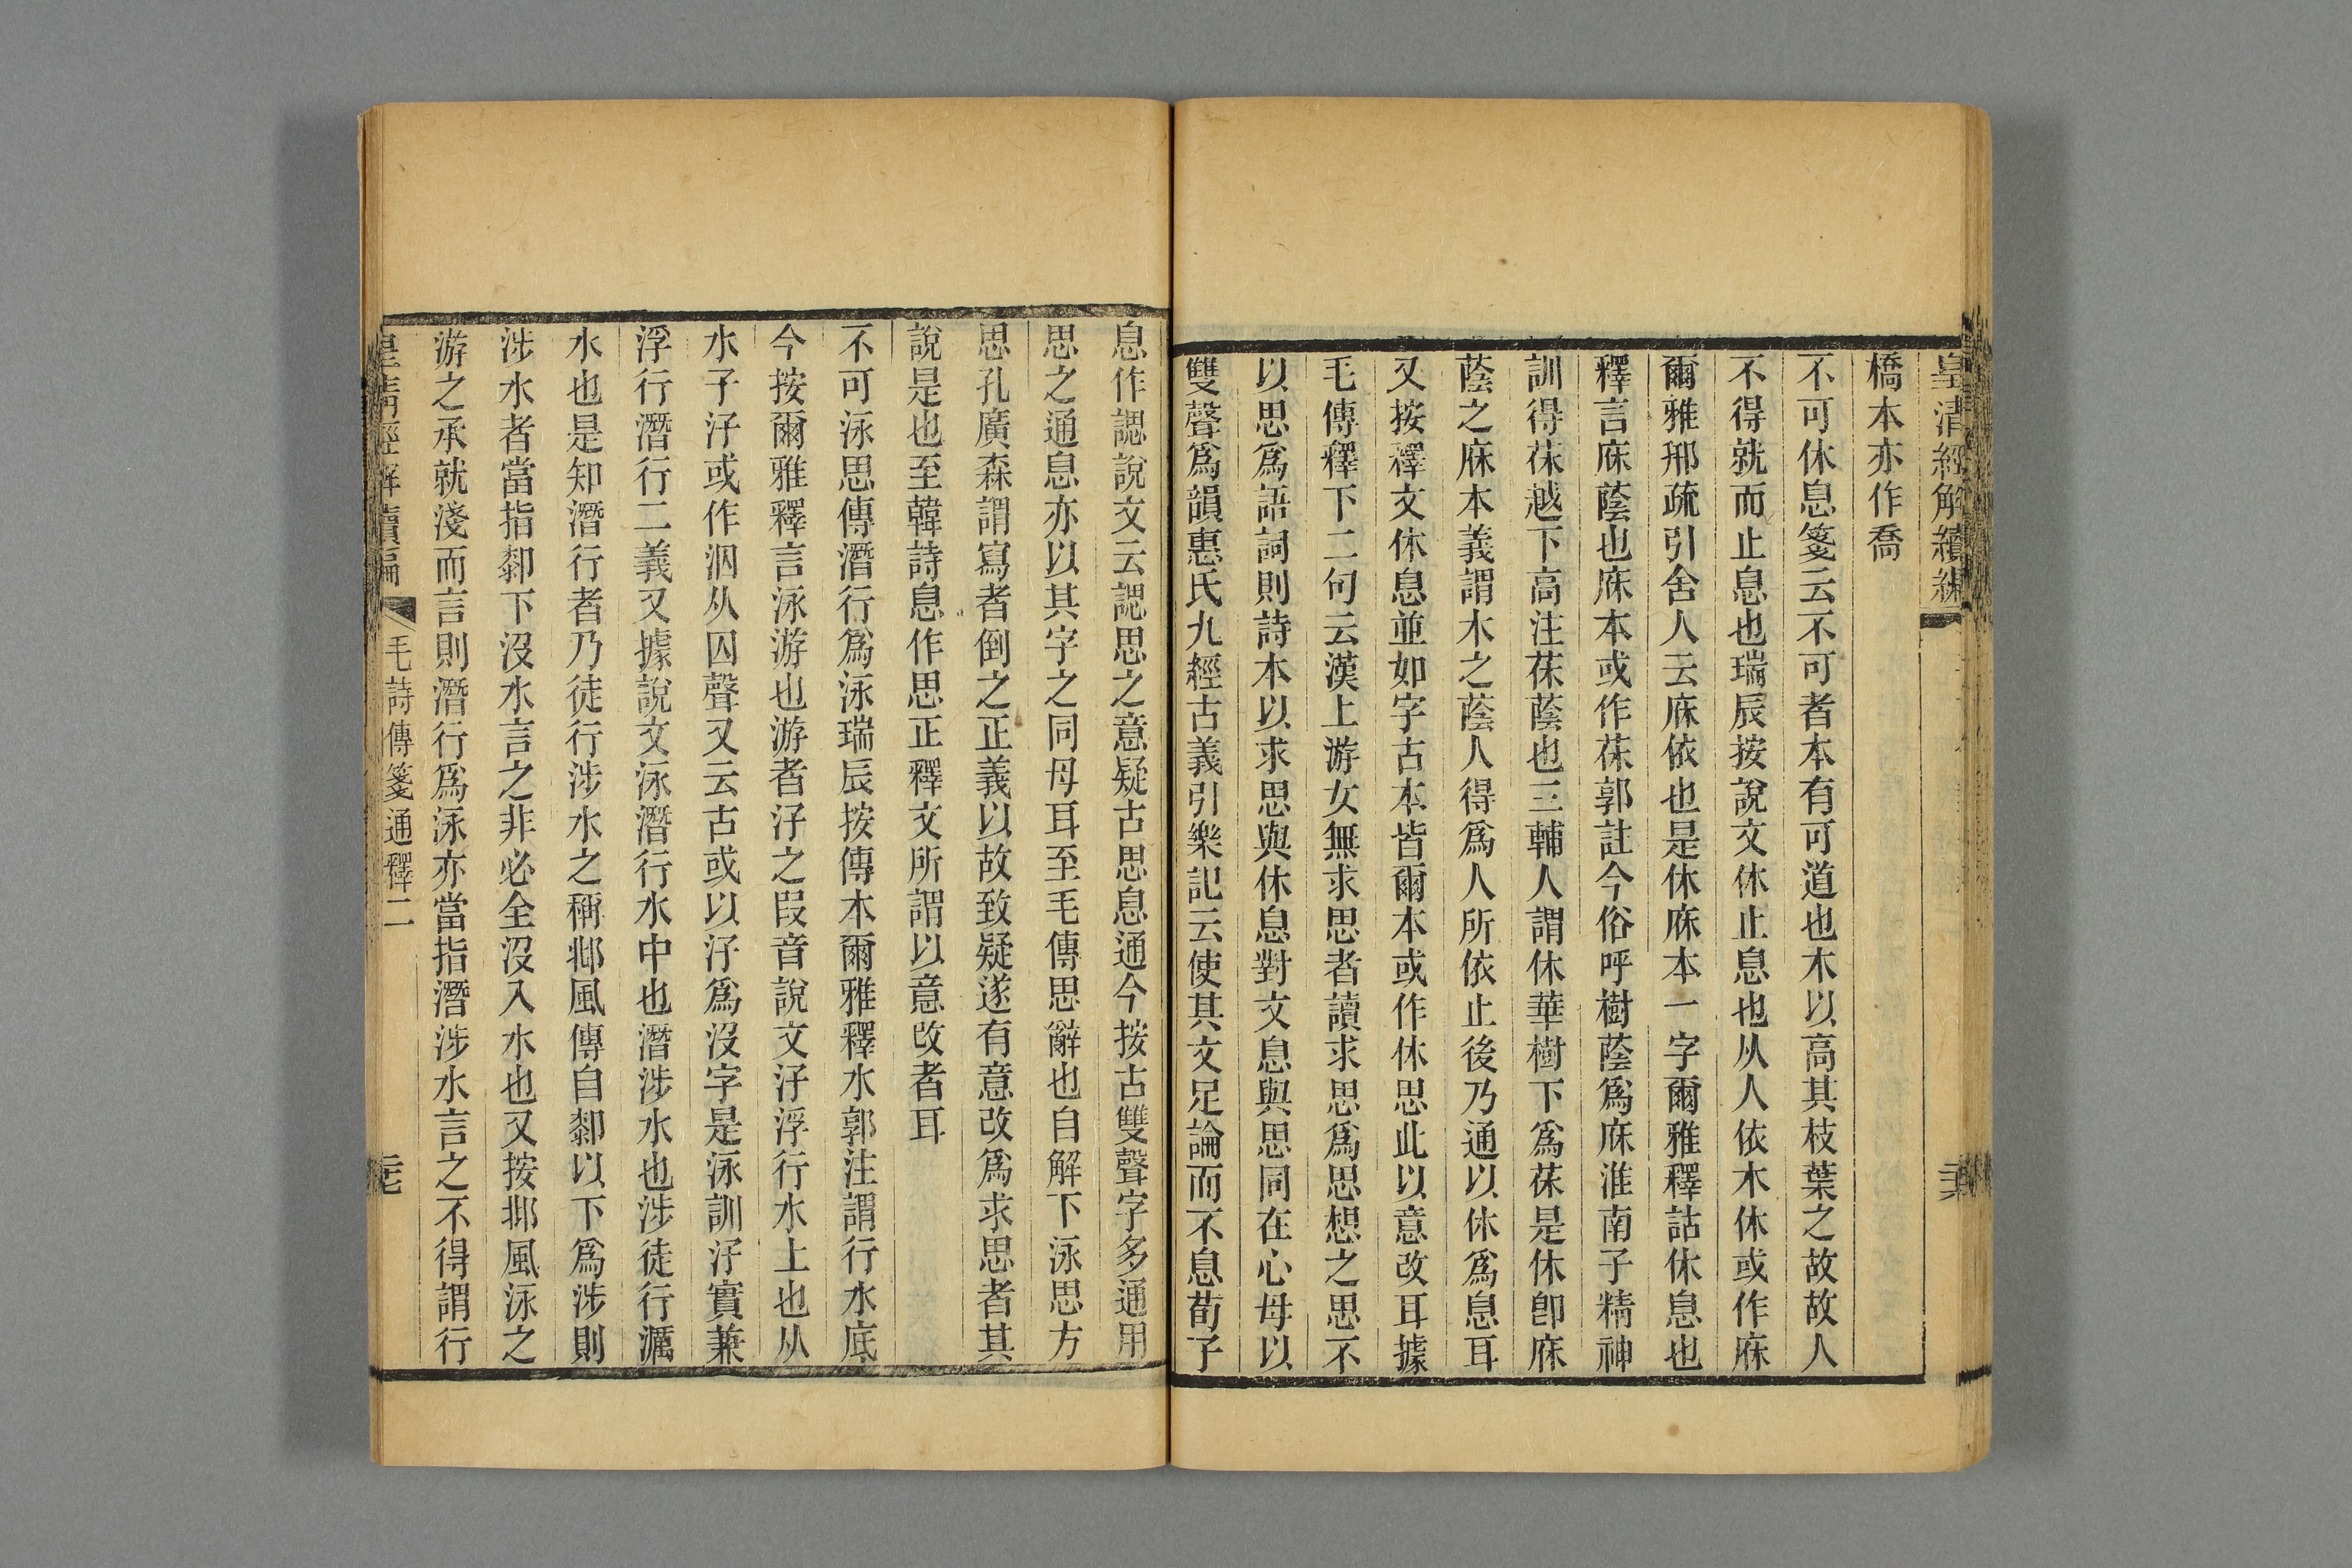 皇清經解續編
橋本亦作喬
不可休息箋云不可者本有可道也木以高其枝葉之故故人
不得就而止息也瑞辰按說文休止息也从人依木休或作庥
爾雅邢疏引舍人云庥依也是休庥本一字爾雅釋詁休息也
釋言庥蔭也庥本或作茠郭註今俗呼樹蔭爲庥淮南子精神
訓得茠越下高注茠蔭也三輔人謂休華樹下爲茠是休卽庥
蔭之庥本義謂木之蔭人得爲人所依止後乃通以休爲息耳
又按釋文休息並如字古本皆爾本或作休思此以意改耳據
毛傳釋下二句云漢上游女無求思者讀求思爲思想之思不
以思爲語詞則詩本以求思與休息對文息與思同在心母以
雙聲爲韻惠氏九經古義引樂記云使其文足論而不息荀子
息作諰說文云諰思之意疑古思息通今按古雙聲字多通用
思之通息亦以其字之同母耳至毛傳思辭也自解下泳思方
思孔廣森謂寫者倒之正義以故致疑遂有意改爲求思者其
說是也至韓詩息作思正釋文所謂以意改者耳
不可泳思傳潛行爲泳瑞辰按傳本爾雅釋水郭注謂行水底
今按爾雅釋言泳游也游者汓之叚音說文汓浮行水上也从
水子汓或作泅从囚聲又云古或以汓爲沒字是泳訓汓實兼
浮行潛行二義又據說文泳潛行水中也潛涉水也涉徒行濿
水也是知潛行者乃徒行涉水之稱邶風傳自厀以下爲涉則
涉水者當指厀下沒水言之非必全沒入水也又按邶風泳之
游之承就淺而言則潛行爲泳亦當指潛涉水言之不得謂行
皇清經解續編
毛詩傳箋通釋二